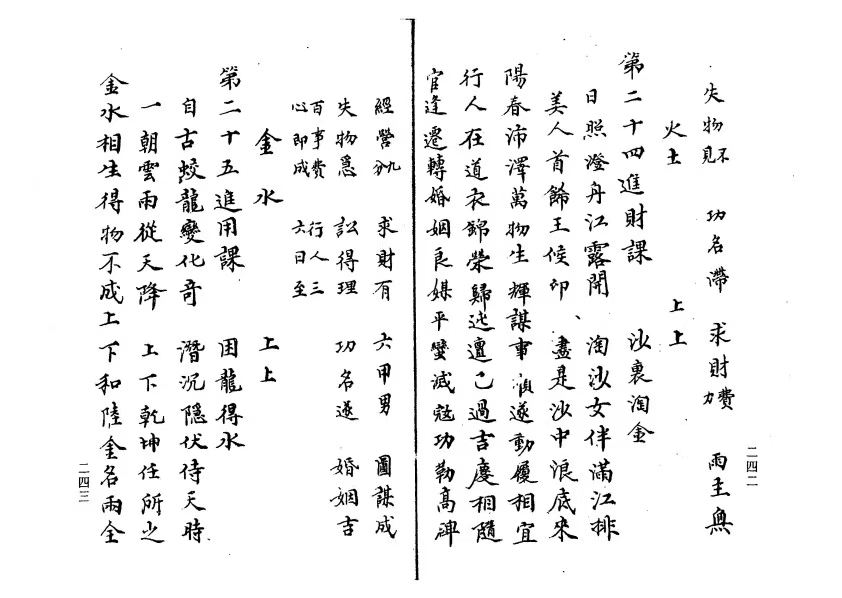 失物不見 功名滯 求財費力 雨主無
火土 上上
第二十四進財課 沙裏淘金
日照澄舟江露開 淘沙女伴滿江排
美人首餙王侯印、盡是沙中浪底來
陽春沛澤萬物生輝謀事順遂動履相宜
行人在道衣錦榮歸迍邅已過吉慶相隨
官逢遷轉婚姻良媒平蠻滅寇功勒高碑
二四二
經營九分 求財有 六甲男 圖謀成
失物急 訟得理 功名遂 婚姻吉
百事費心即成 行人三六日至
金水 上上
第二十五進用課 困龍得水
自古蛟龍變化奇 潛沉隱伏待天時
一朝雲雨從天降 上下乾坤任所之
金水相生得物不成上下和陸金名兩全
二四三